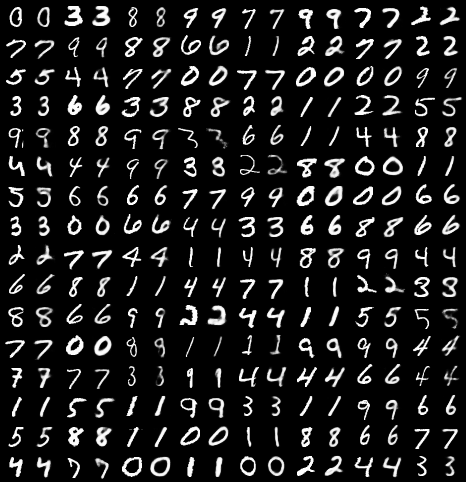 0 0 3 3 8 8 9 9 7 7 9 9 7 7 2 2
7 7 9 9 8 8 6 6 1 1 2 2 7 7 2 2
5 5 4 4 7 7 0 0 7 7 0 0 0 0 9 9
3 3 6 6 3 3 8 8 2 2 1 1 2 2 5 5
9 9 8 8 9 9 3 3 6 6 1 1 4 4 8 8
4 4 4 4 9 9 3 3 2 2 8 8 0 0 1 1
5 5 6 6 6 6 7 7 9 9 0 0 0 0 6 6
3 3 0 0 6 6 4 4 3 3 6 6 8 8 6 6
2 2 7 7 4 4 1 1 4 4 8 8 9 9 4 4
6 6 8 8 1 1 4 4 7 7 1 1 2 2 3 3
8 8 6 6 9 9 2 2 4 4 1 1 5 5 5 5
7 7 0 0 8 9 1 1 1 1 9 9 9 9 4 4
7 7 7 7 3 3 9 9 4 4 4 4 6 6 4 4
1 1 5 5 1 1 9 9 3 3 1 1 9 9 6 6
5 5 8 8 1 1 0 0 1 1 8 8 6 6 7 7
4 4 7 7 0 0 1 1 0 0 2 2 4 4 3 3